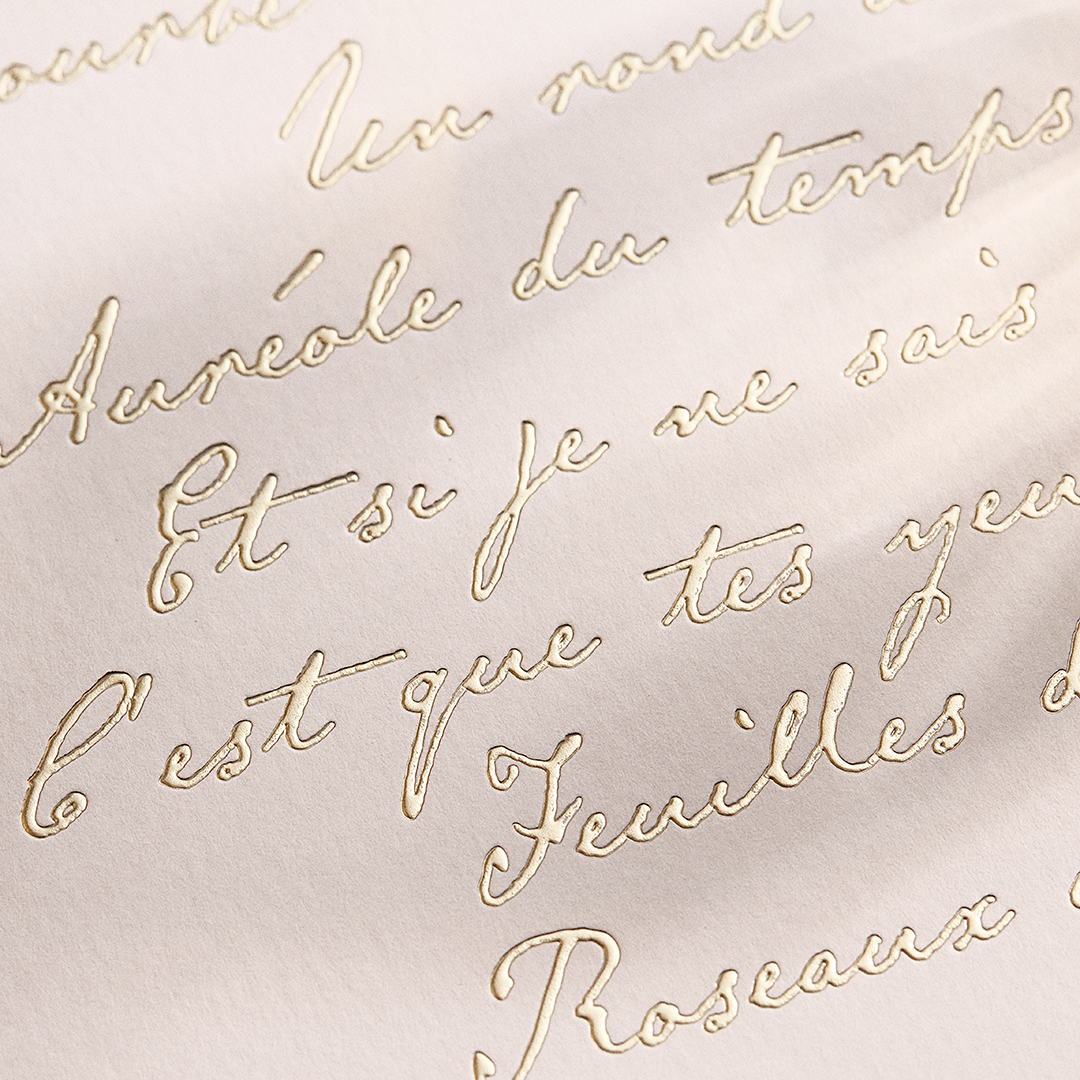 ourbe
Un rond
Auréole du temps
Et si je ne sais
C'est que tes yeu
Feuilles d
Roseaux